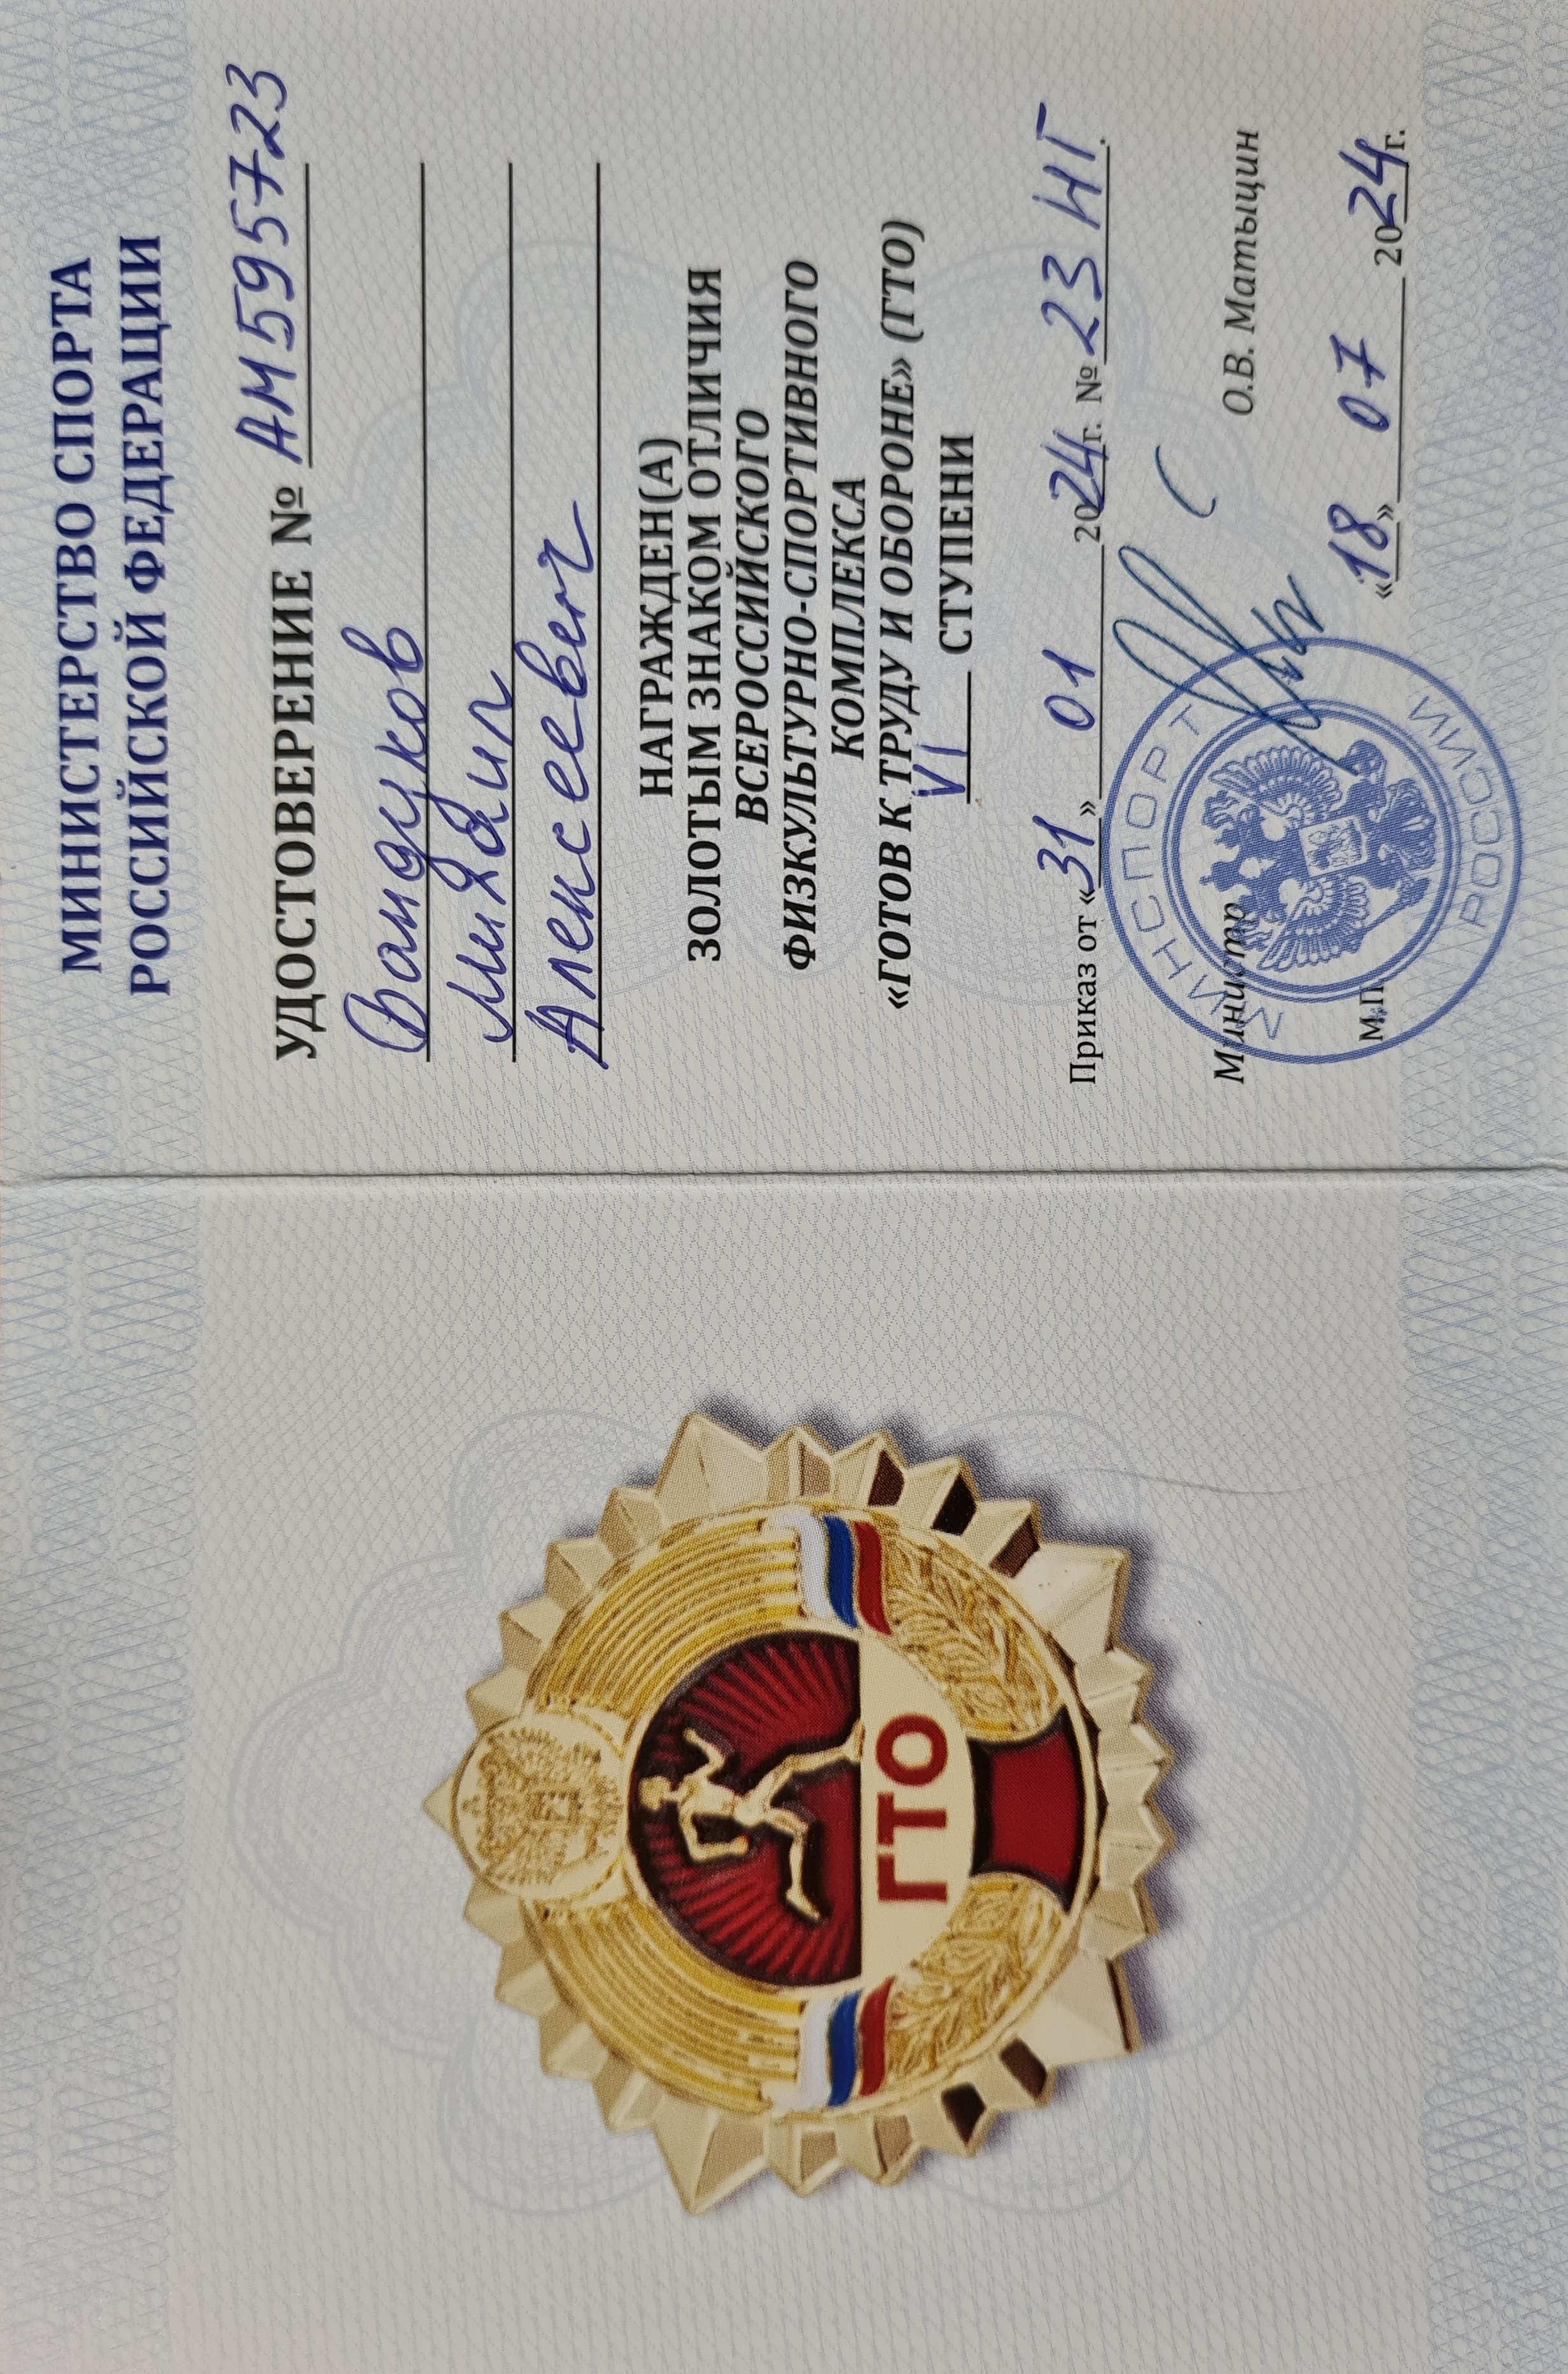 ГТО
МИНИСТЕРСТВО СПОРТА
РОССИЙСКОЙ ФЕДЕРАЦИИ
УДОСТОВЕРЕНИЕ № АМ595723
Бандуков
Михаил
Алексеевич
НАГРАЖДЕН(А)
ЗОЛОТЫМ ЗНАКОМ ОТЛИЧИЯ
ВСЕРОССИЙСКОГО
ФИЗКУЛЬТУРНО-СПОРТИВНОГО
КОМПЛЕКСА
«ГОТОВ К ТРУДУ И ОБОРОНЕ» (ГТО)
VI СТУПЕНИ
Приказ от «31» 01 2024г. № 23 НГ.
МИНСПОРТ
Министр О.В. Матыцин
М.П. «18» 07 2024г.
РОССИИ